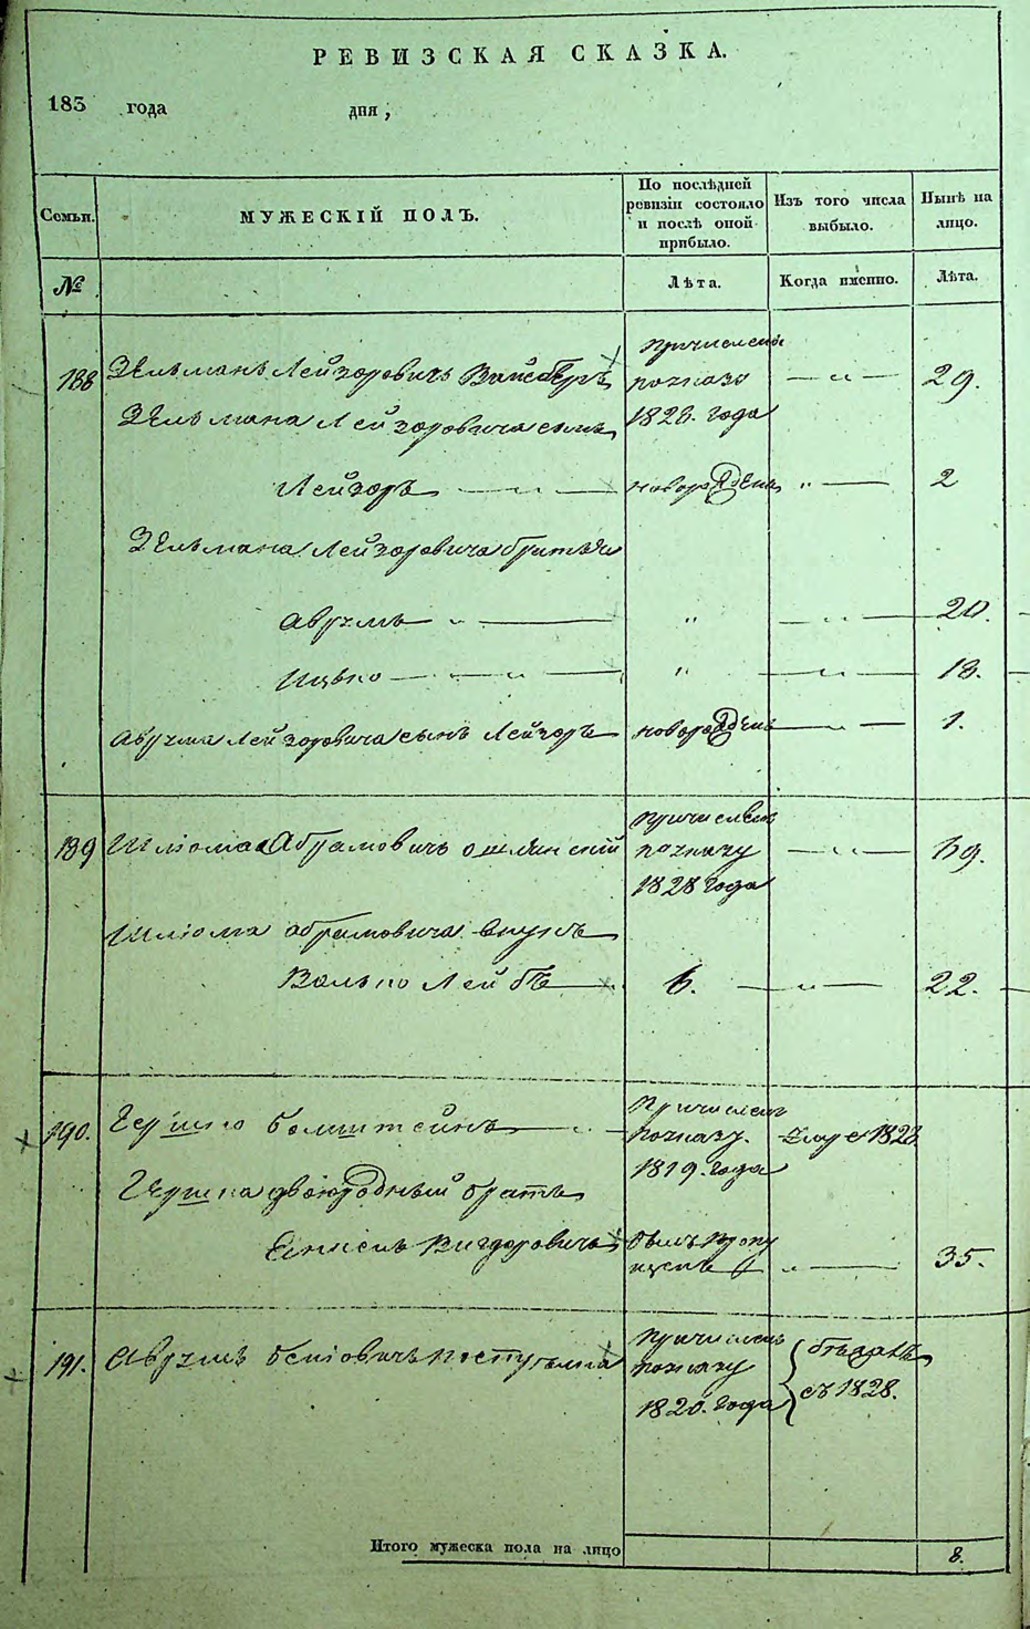 РЕВИЗСКАЯ СКАЗКА.
183 года дня,
Семьи. МУЖЕСКІЙ ПОЛЪ. По послѣдней ревизіи состояло и послѣ оной прибыло. Изъ того числа выбыло. Нынѣ на лицо.
№ Лѣта. Когда именно. Лѣта.
Причисленъ
188 Зельманъ Лейзоровичъ Вайсбергъ 29.
Зельмана Лейзоровича сынъ 1826. года
Лейзоръ новорожденъ 2
Зельмана Лейзоровича братья
Аврумъ " 20.
Ицько " 18.
Аврума Лейзоровича сынъ Лейзоръ новорожденъ 1.
Причисленъ
189 Шліома Абрамовичъ Ошлянскій по указу 69.
1828 года
Шліома Абрамовича внукъ
Волько Лейбъ 6. 22.
Причисленъ
190. Гершко Бомштейнъ по указу.
1819. года
Гершка двоюродный братъ
Вигдоровичъ былъ пропу
щенъ 35.
Причисленъ
191. Аврумъ по указу
1820. года съ 1828.
Итого мужеска пола на лицо 8.